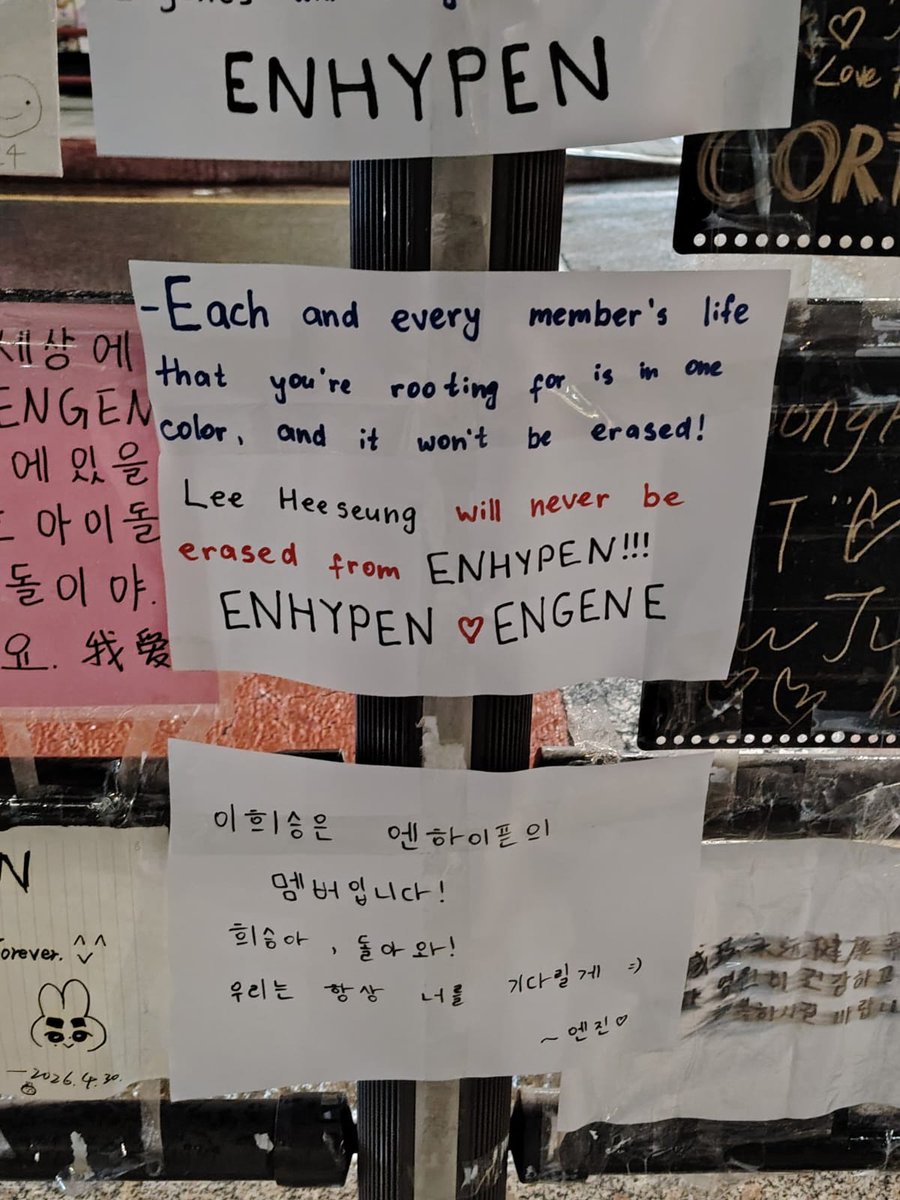 ENHYPEN
Love
COR
-Each and every member's life
that you're rooting for is in one
color, and it won't be erased!
Lee Heeseung will never be
erased from ENHYPEN!!!
ENHYPEN ♡ ENGENE
세상에
ENGEN
에 있을
아이돌
돌이 야.
요. 我爱
이희승은 엔하이픈의
멤버입니다!
희승아, 돌아와!
우리는 항상 너를 기다릴게 =)
~엔진♡
N
orever. ^^
2026.4.30.